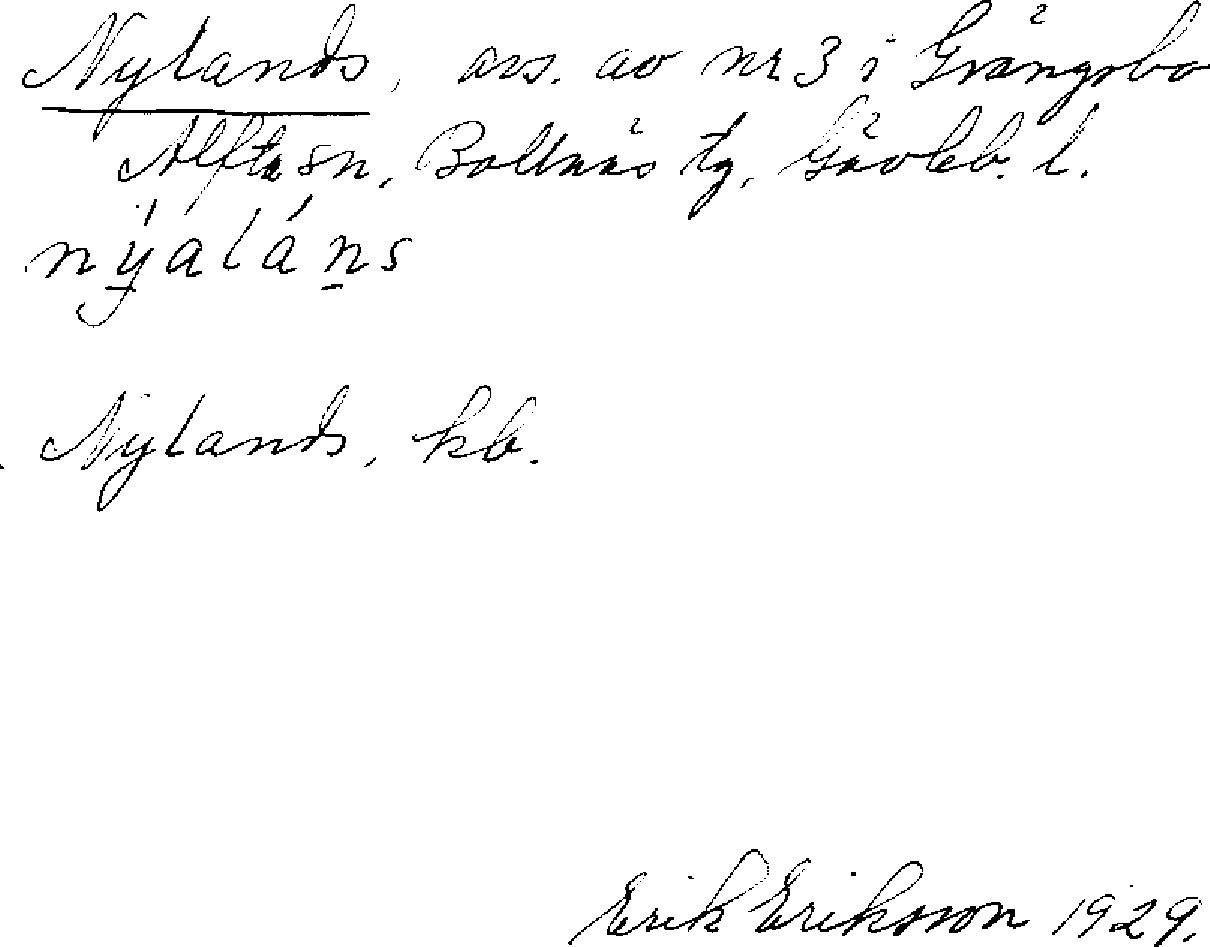 Nylands, avs. av nr 3 i Grängsbo
Alfta sn, Bollnäs tg, Gävleb. l.
nýaláns
Nylands, kb.
Erik Eriksson 1929.